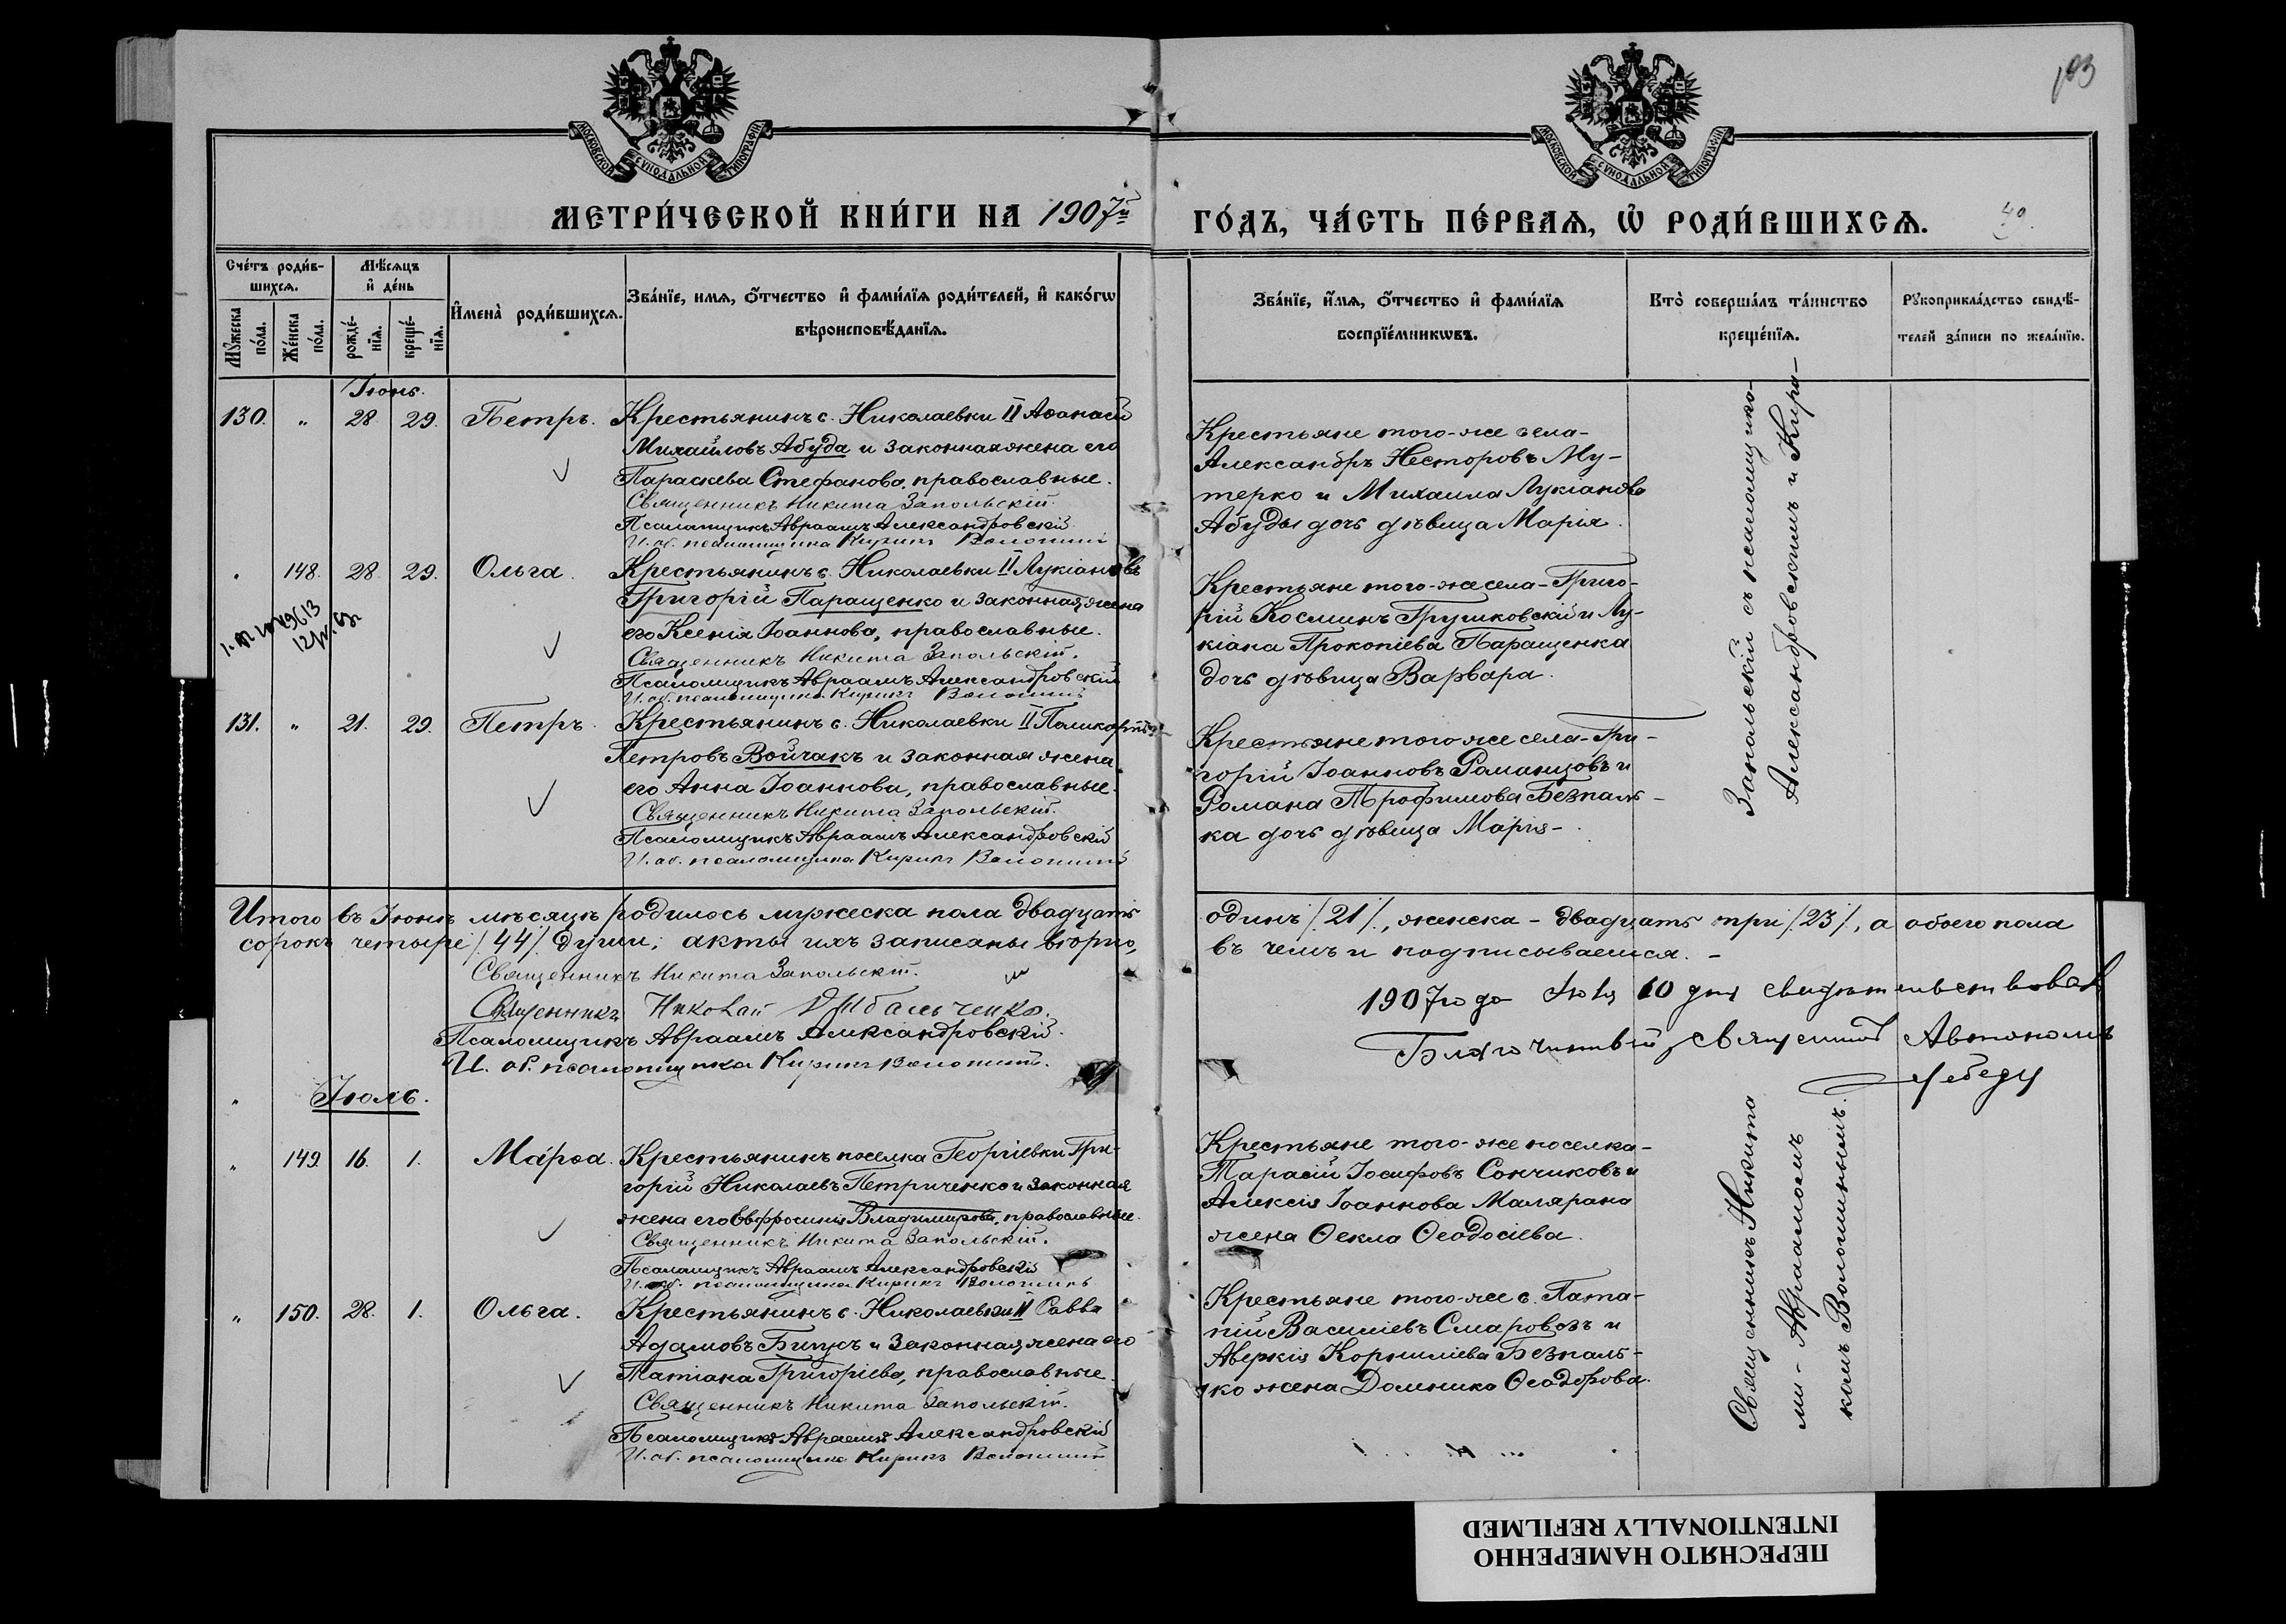 193
МОСКОВСКОЙ СѴНОДАЛЬНОЙ ТИПОГРАФІИ
МОСКОВСКОЙ СѴНОДАЛЬНОЙ ТИПОГРАФІИ
МЕТРИ́ЧЕСКОЙ КНИ́ГИ НА 1907й ГО́ДЪ, ЧА́СТЬ ПЕ́РВАѦ, Ѡ҆ РОДИ́ВШИХСѦ.
Сче́тъ роди́в-
шихсѧ.
Мꙋ́жеска по́ла.
Же́нска по́ла.
Мѣ́сѧцъ
и҆ де́нь
рожде́-нїѧ.
креще́-нїѧ.
И҆мена̀ роди́вшихсѧ.
Зва́нїе, имѧ, ѻ҆́тчество и҆ фами́лїѧ роди́телей, и҆ како́гѡ
вѣроисповѣ́данїѧ.
Зва́нїе, и҆́мѧ, ѻ҆́тчество и҆ фами́лїѧ
воспрїе́мникѡвъ.
Кто̀ соверша́лъ та́инство
креще́нїѧ.
Рꙋкоприкла́дство свидѣ́-
телей за́писи по жела́нїю.
Іюнь.
130. " 28. 29. Петръ. Крестьянинъ с. Николаевки II Аѳанасій
Михайловъ Абуда и законная жена его
Параскева Стефанова, православные.
Священникъ Никита Запольскій.
Псаломщикъ Авраамъ Александровскій
И. об. псаломщика Кирикъ Волошинъ
Крестьяне того-же села-
Александръ Несторовъ Му-
терко и Михаила Лукіанова
Абуды дочь дѣвица Марія.
" 148. 28. 29. Ольга. Крестьянинъ с. Николаевки II Лукіановъ
Григорій Паращенко и законная жена
его Ксенія Іоаннова, православные.
Священникъ Никита Запольскій.
Псаломщикъ Авраамъ Александровскій
И. об. псаломщика Кирикъ Волошинъ
Крестьяне того-же села-Григо-
рій Косминъ Грушковскій и Лу-
кіана Прокопіева Паращенка
дочь дѣвица Варвара.
131. " 21. 29. Петръ. Крестьянинъ с. Николаевки II Поликарпъ
Петровъ Войчакъ и законная жена
его Анна Іоаннова, православные.
Священникъ Никита Запольскій.
Псаломщикъ Авраамъ Александровскій
И. об. псаломщика Кирикъ Волошинъ
Крестьяне того же села-Гри-
горій Іоанновъ Романцовъ и
Романа Трофимова Безпаль-
ка дочь дѣвица Марія-
Запольскій съ псаломщико-
Александровскимъ и Кири-
Итого въ Іюнѣ мѣсяцѣ родилось мужеска пола двадцать одинъ /21/, женска - двадцать три /23/, а обоего пола
сорокъ четыре /44/ души; акты ихъ записаны вѣрно, въ чемъ и подписываемся. -
Священникъ Никита Запольскій.
Священникъ Николай
Псаломщикъ Авраамъ Александровскій.
И. об. псаломщика Кирикъ Волошинъ.
1907 года Іюля 10 дня свидѣтельствовалъ
Благочинный Священникъ Автономъ
Лебеду
Іюль.
" 149. 16. 1. Марѳа. Крестьянинъ поселка Георгіевки Гри-
горій Николаевъ Петриченко и законная
жена его Евфросинія Владимирова, православные.
Священникъ Никита Запольскій.
Псаломщикъ Авраамъ Александровскій
И. об. псаломщика Кирикъ Волошинъ
Крестьяне того-же поселка-
Тарасій Іосифовъ Сончиковъ и
Алексія Іоаннова Малярана
жена Ѳекла Ѳеодосіева.
" 150. 28. 1. Ольга. Крестьянинъ с. Николаевки II Савва
Адамовъ Бицукъ и законная жена его
Татіана Григоріева, православные.
Священникъ Никита Запольскій.
Псаломщикъ Авраамъ Александровскій
И. об. псаломщика Кирикъ Волошинъ
Крестьяне того-же с. Пата-
пій Василіевъ Смаровозъ и
Аверкія Корниліева Безпаль-
ко жена Домника Ѳеодорова.
Священникъ Никита
ми - Авраамомъ
комъ Волошинымъ.
ПЕРЕСНЯТО НАМЕРЕННО
INTENTIONALLY REFILMED